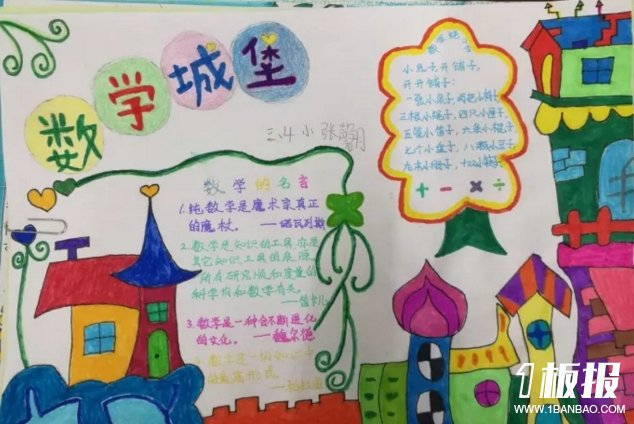 数学城堡
三.4 小 张馨月
数学的名言
1.纯数学是魔术家真正
的魔杖。——诺瓦列斯
2.数学是知识的工具,亦是
其它知识工具的泉源。
所有研究顺序和度量的
科学均和数学有关。
——笛卡儿
3.数学是一种会不断进化
的文化。——魏尔德
4.数学是一种
的最高形式
小兔子,开铺子,
开开铺子:
一张小桌子,两把小椅子,
三根小绳子,四只小匣子,
五管小笛子,六条小棍子,
七个小盒子,八颗小豆子,
九本小册子,十双小筷子。
+ - × ÷
1板报
WWW.1BANBAO.COM